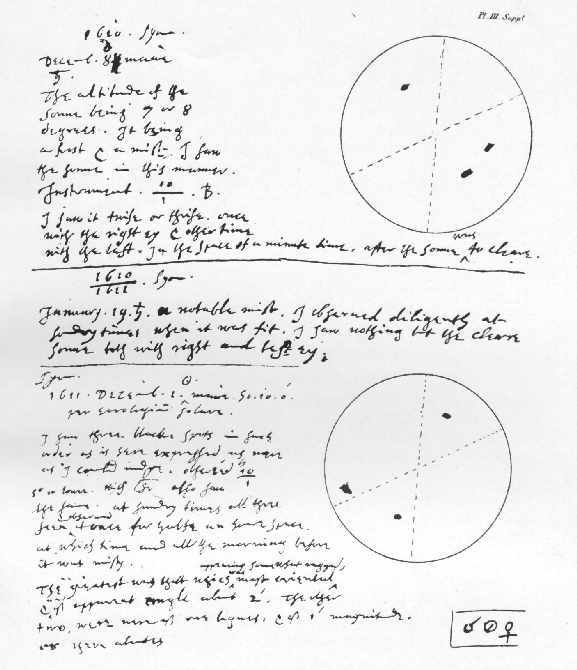 Pl. III. Suppl
1610. Syon.
Decemb. 8 mane
♄.
The altitude of the
sonne being 7 or 8
degrees. It being
a frost & a mist. I saw
the sonne in this manner.
Instrument. 10/1 . B.
I saw it twise or thrise. once
with the right ey & other time
with the left. In the space of a minute time, after the sonne was to cleare.
1610
1611 . Syon.
January. 19. ♄. a notable mist. I observed diligently at
sundry times when it was fit. I saw nothing but the cleare
sonne both with right and left ey.
Syon. ☉.
1611. Decemb. 1. mane
per horologium solare.
I saw three blacke spots in such
order as is here expressed as nere
as I could judge. observed 10/1
also saw
the same. at sundry times all three
seen at once for halfe an houre space.
at which time and all the morning before
it was misty.
appearing somewhat ragged,
The greatest was that which was most oriental
& of apparent angle about 2'. The other
two, were nere of one bignes, & of 1' magnitude.
or there abouts
♂ ☉ ♀